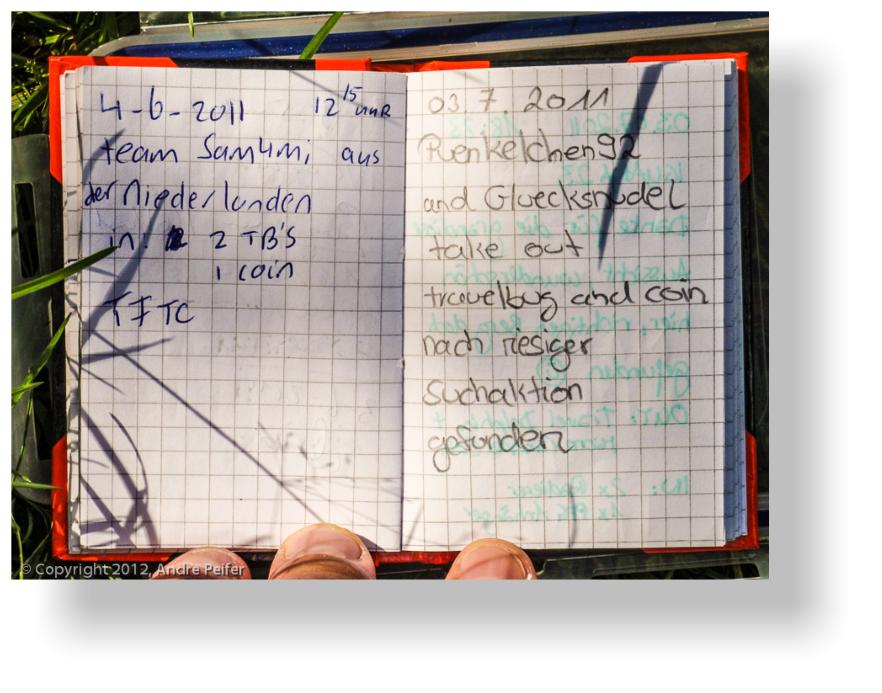 4-6-2011 12¹⁵ uuR
team Sam4mi, aus
der Niederlanden
in: 2 TB'S
1 coin
TFTC
03.7.2011
Renkelchen92
and Gluecksnudel
take out
travelbug and coin
nach riesiger
Suchaktion
gefunden
© Copyright 2012, Andre Peifer